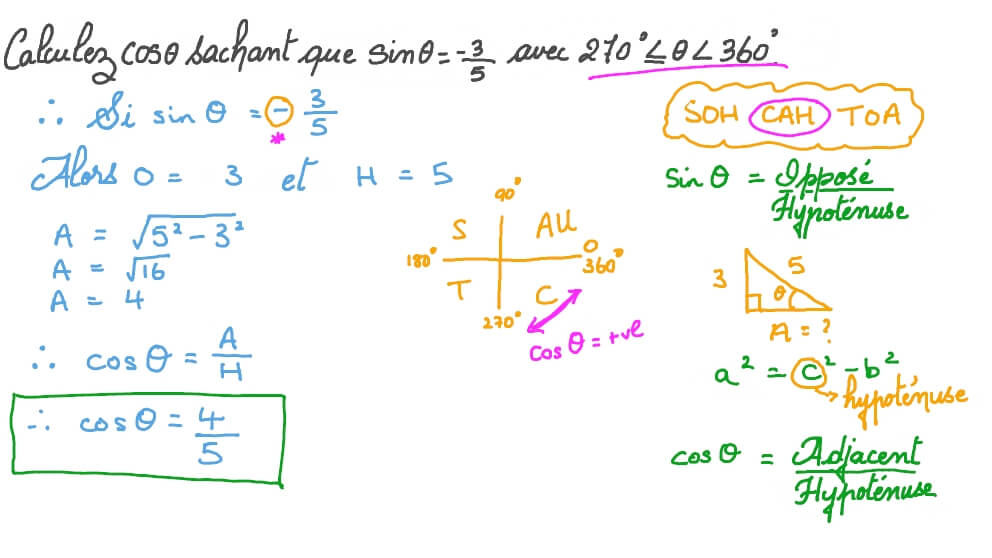 Calculez cosθ sachant que sinθ = -3/5 avec 270° ≤ θ < 360°.
∴ Si sin θ = - 3/5
*
Alors O = 3 et H = 5
A = √5² - 3²
A = √16
A = 4
∴ cos θ = A/H
∴ cos θ = 4/5
90°
S AU
180° 0
360°
T C
270°
cos θ = +ve
SOH CAH TOA
sin θ = Opposé/Hypoténuse
3 5
θ
A = ?
a² = c² - b²
hypoténuse
cos θ = Adjacent/Hypoténuse